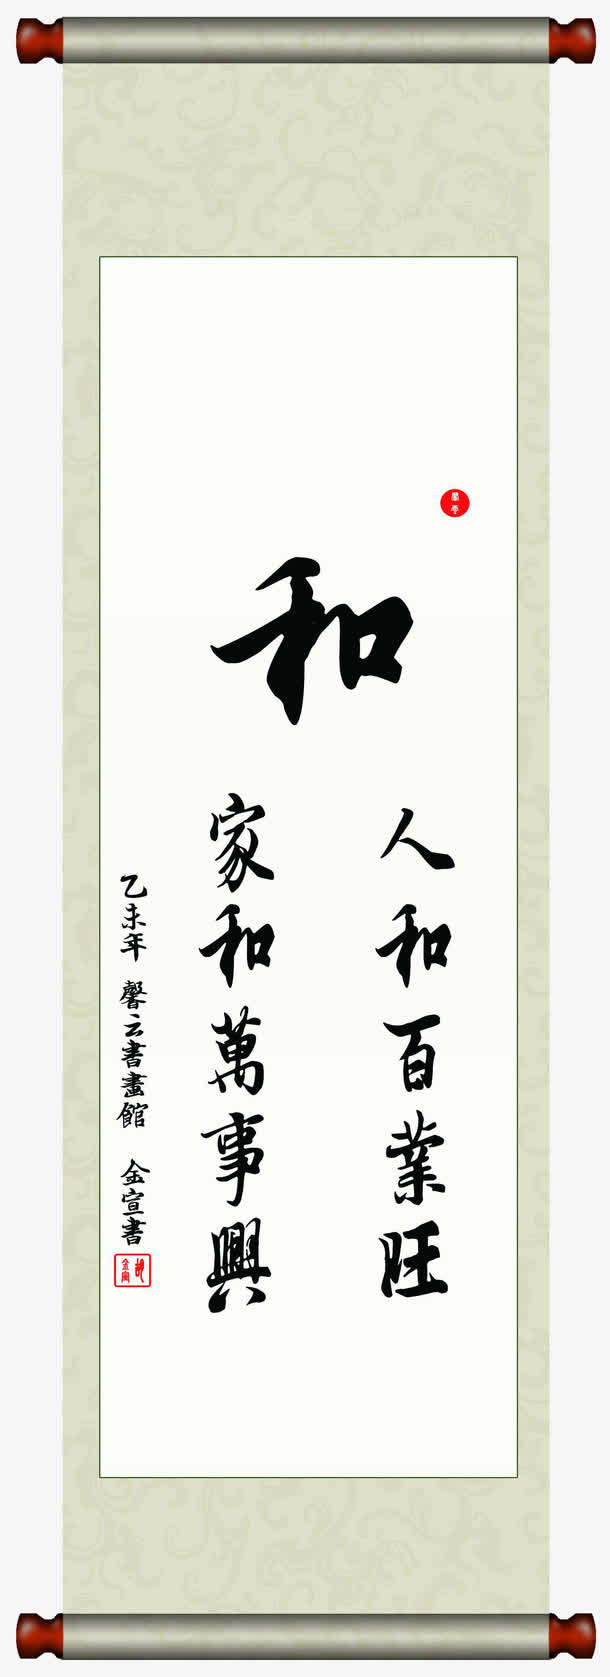 和
人和百業旺
家和萬事興
乙未年 馨云書畫館 金宣書